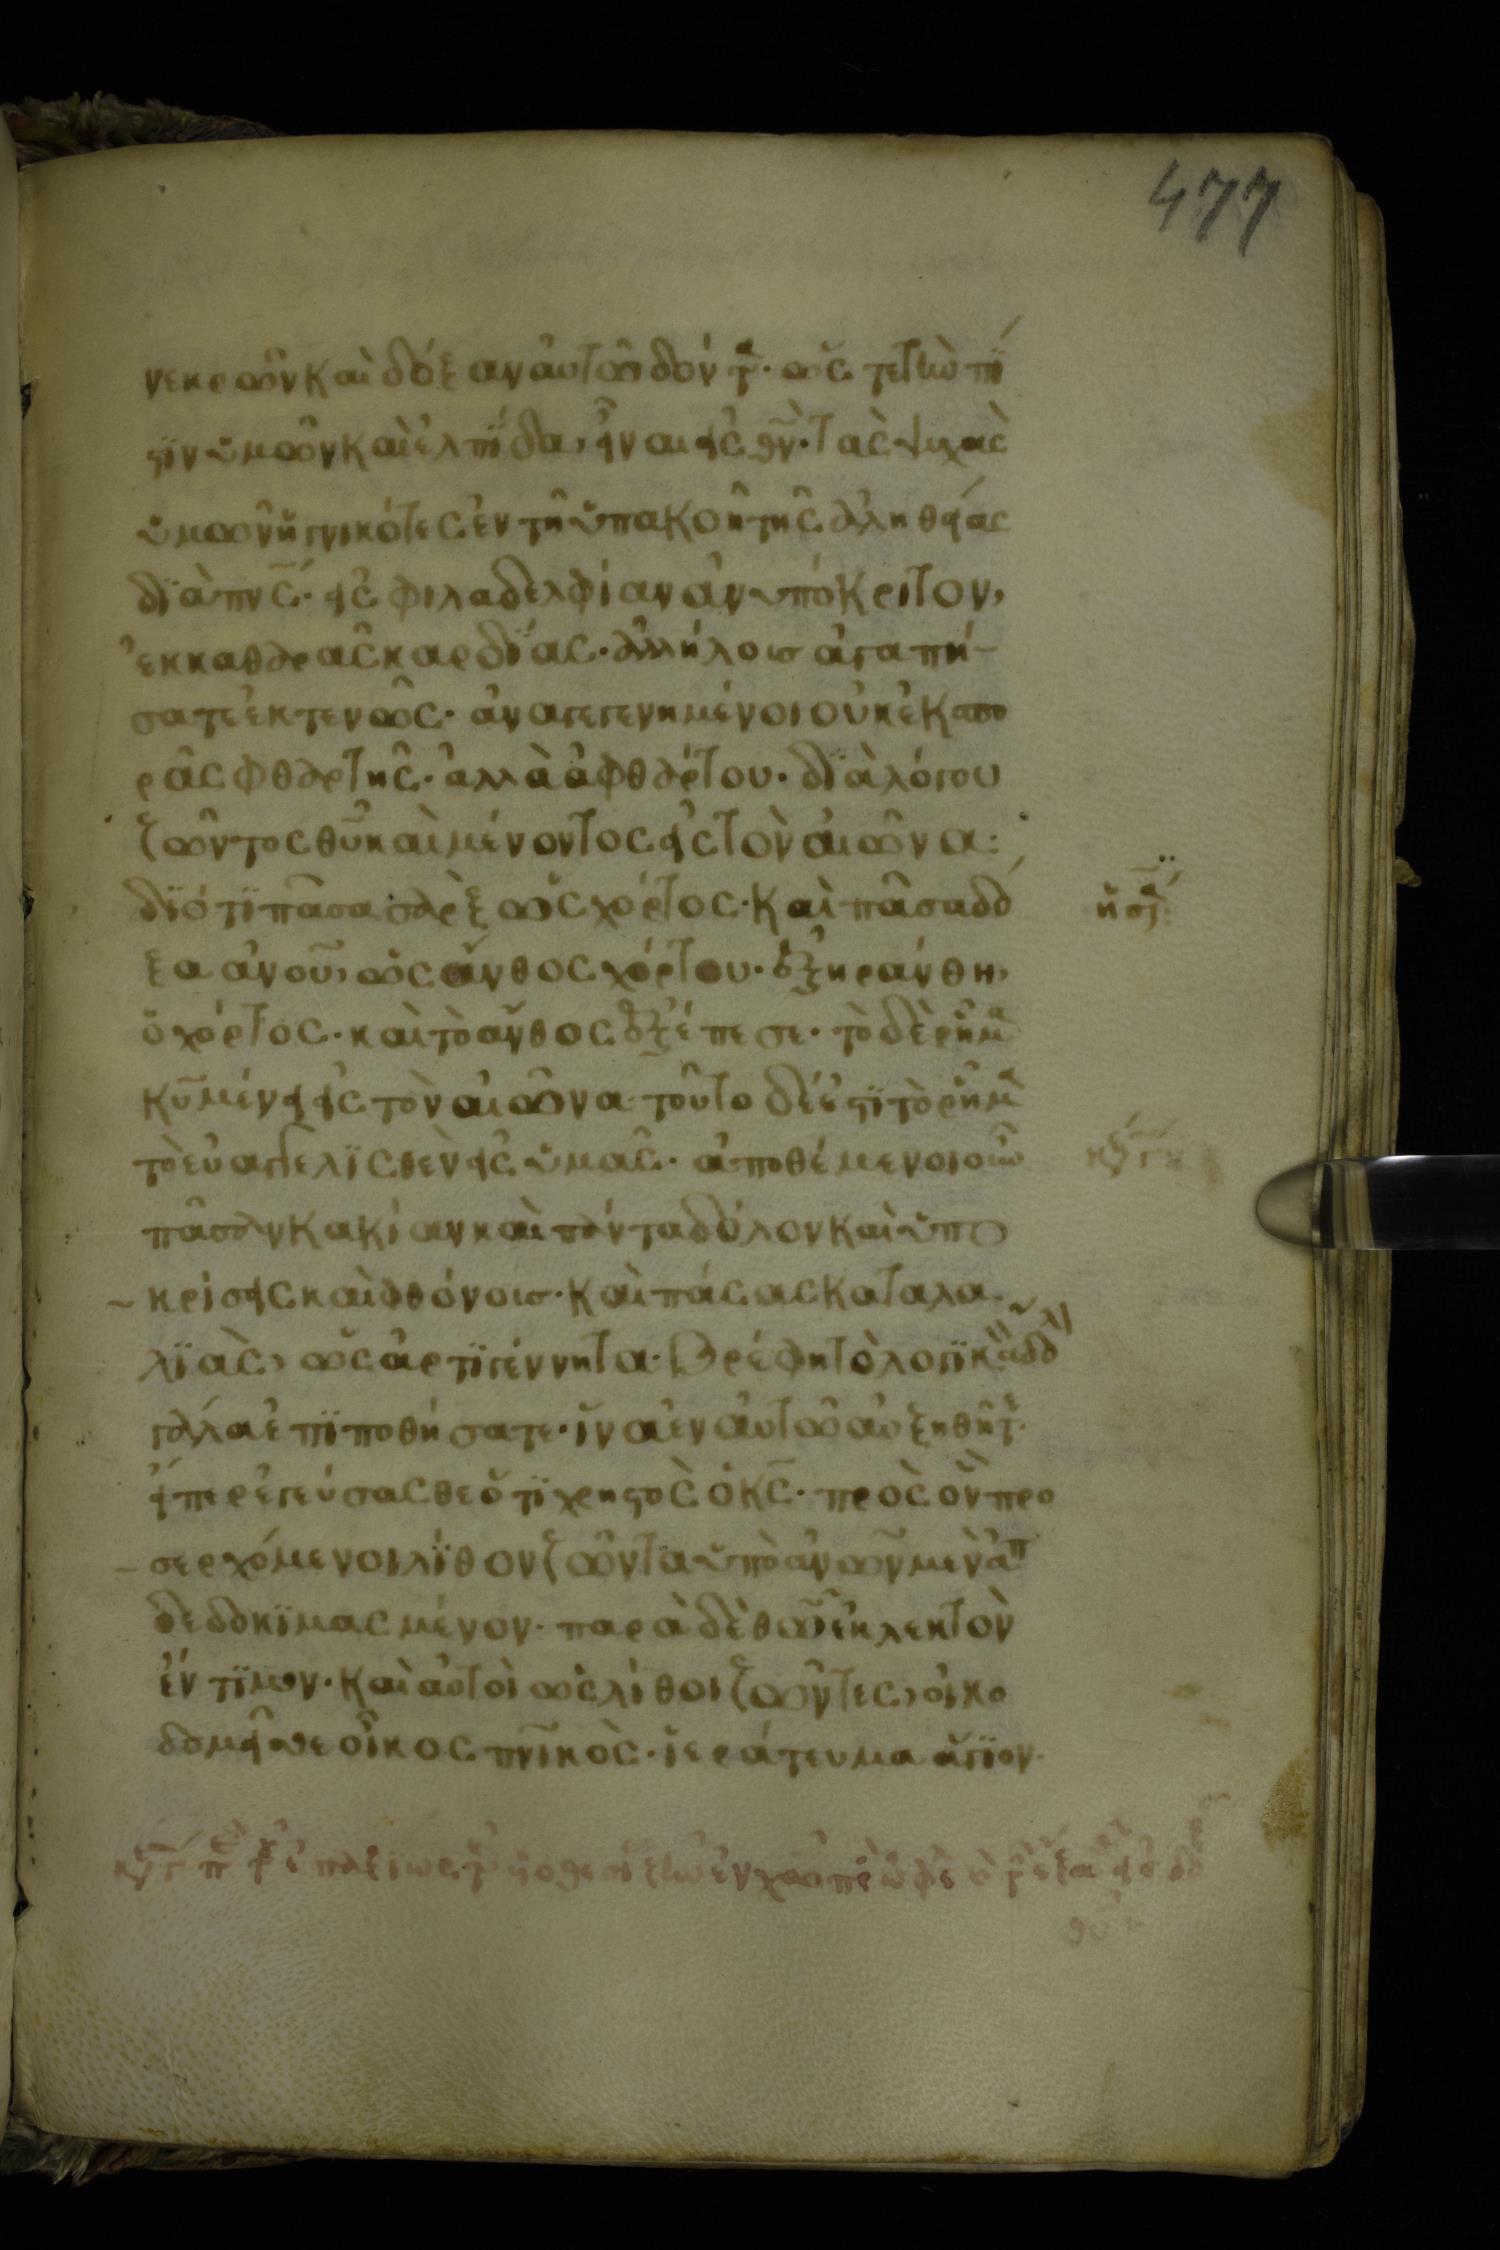 477
νεκρῶν καὶ δόξαν αὐτῶ δόντα· ὥστε τὴν πί
στιν ὑμῶν καὶ ἐλπίδα, εἶναι εἰς θν̄· τὰς ψυχὰς
ὑμῶν ἡγνικότες ἐν τῆ ὑπακοῆ τῆς ἀληθείας
διὰ πνς̄· εἰς φιλαδελφίαν ἀνυπόκριτον,
ἐκ καθαρᾶς καρδίας· ἀλλήλοις ἀγαπή-
σατε ἐκτενῶς· ἀναγεγενημένοι οὐκ ἐκ σπο
ρᾶς φθαρτῆς· ἀλλὰ ἀφθάρτου· διὰ λόγου
ζῶντος θῡ καὶ μένοντος εἰς τὸν αἰῶνα:
διότι πᾶσα σὰρξ ὡς χόρτος· καὶ πᾶσα δό
ξα ἀνοῦ, ὡς ἄνθος χόρτου· ἐξηράνθη,
ὁ χόρτος· καὶ τὸ ἄνθος ἐξέπεσε· τὸ δὲ ῥῆμα
κῡ μένει εἰς τὸν αἰῶνα· τοῦτο δέ ἐστι τὸ ῥῆμα
τὸ εὐαγγελισθὲν εἰς ὑμᾶς· ἀποθέμενοι οὖν
πᾶσαν κακίαν καὶ πάντα δόλον καὶ ὑπο
κρίσεις καὶ φθόνοις· καὶ πάσας καταλα
λιὰς, ὡς ἀρτιγέννητα· βρέφη τὸ λογικὸν ἄδολον
γάλα ἐπιποθήσατε· ἵνα ἐν αὐτῶ αὐξηθῆτε·
εἴπερ ἐγεύσασθε ὅτι χρηστὸς ὁ κς̄· πρὸς ὃν προ
σερχόμενοι λίθον ζῶντα ὑπὸ ἀνῶν μὲν ἀπο
δεδοκιμασμένον· παρὰ δὲ θῶ ἐκλεκτὸν
ἔντιμον· καὶ αὐτοὶ ὡς λίθοι ζῶντες, οἰκο
δομεῖσθε οἶκος πνικὸς· ἱεράτευμα ἅγιον·